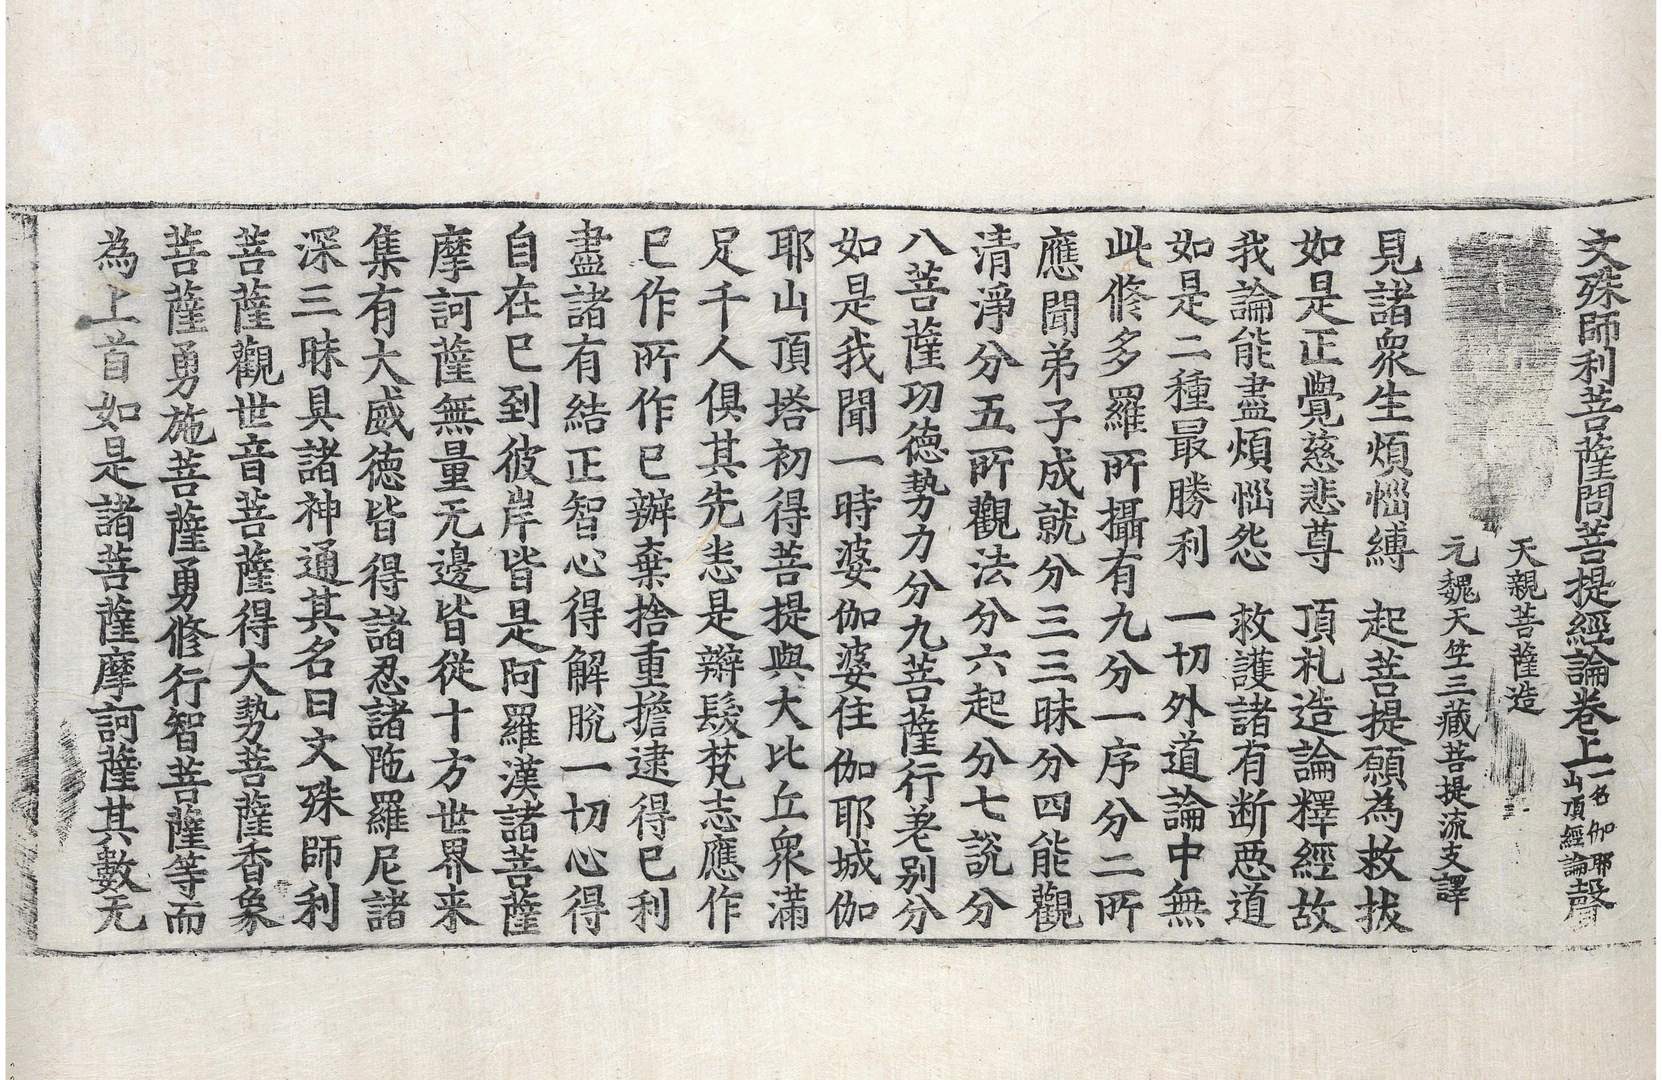 文殊師利菩薩問菩提經論卷上一名伽耶山頂經論聲
天親菩薩造
元魏天竺三藏菩提流支譯
見諸衆生煩惱縛　起菩提願為救拔
如是正覺慈悲尊　頂札造論釋經故
我論能盡煩惱怨　救護諸有断惡道
如是二種最勝利　一切外道論中無
此脩多羅所攝有九分一序分二所
應聞弟子成就分三三昧分四能觀
清淨分五所觀法分六起分七說分
八菩薩功德勢力分九菩薩行差别分
如是我聞一時婆伽婆住伽耶城伽
耶山頂塔初得菩提與大比丘衆滿
足千人俱其先悉是辮髮梵志應作
已作所作已辦棄捨重擔逮得已利
盡諸有結正智心得解脫一切心得
自在已到彼岸皆是阿羅漢諸菩薩
摩訶薩無量无邊皆從十方世界来
集有大威德皆得諸忍諸陁羅尼諸
深三昧具諸神通其名曰文殊師利
菩薩觀世音菩薩得大勢菩薩香象
菩薩勇施菩薩勇脩行智菩薩等而
為上首如是諸菩薩摩訶薩其數无